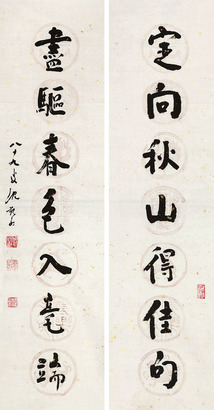 定向秋山得佳句
盡驅春色入毫端
八十九叟